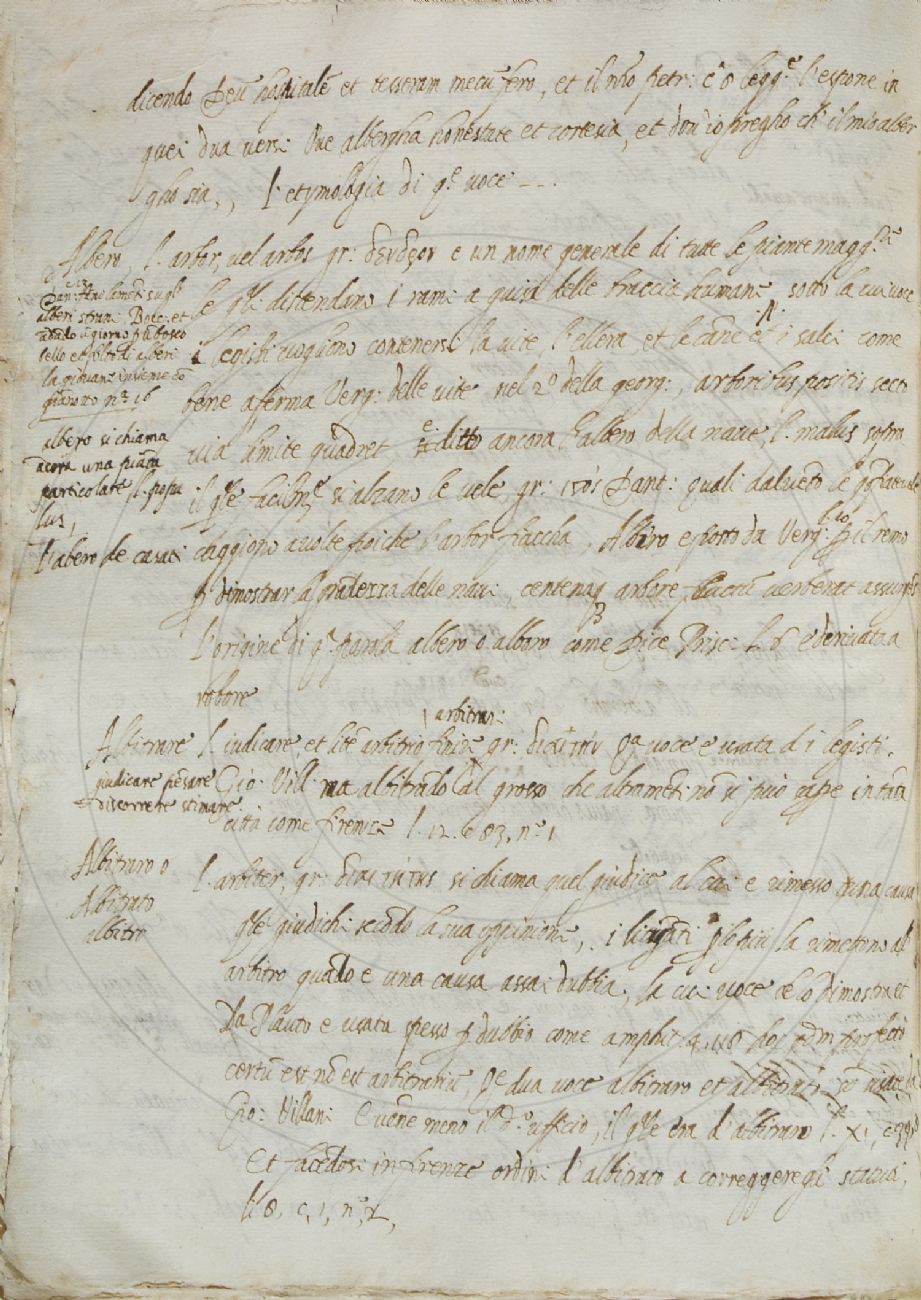 dicendo Deũ hospitalẽ et tesseram mecũ fero, et il nr̃o petr: c 8 legg.e l'espone in
quei dua versi Ove albergha honestate et cortesia, et dov' io pregho ch' il mio alber
gho sia,, l'etymologia di q.e voce ---
Albero, l. arbor, vel arbos gr: δενδρον e un nome generale di tutte le piante magg.
le q̃li distendono i rami a guisa delle braccia humane sotto la cui voce
i legisti vogliono contenersi la vite, l'ellera et le canne et i salci come
bene aferma Verg: delle vite nel 2º della georg:, arboribus positis secto
via limite quadret e ditto ancora l'albero della nave, l. malus sopra
il q̃le facilm.e si alzano le vele, gr: ιςός Dant: quali dal vento le gonfiate vele
caggiono avolte poi che l'arbor fiaccha, Albero e posto da Verg: p il remo
p dimostrar la grãdezza delle navi, centenaq arbore fluctũ verberat assurgẽs
l'origine di q.a parola albero o alboro come dice Prisc: l. 6 e derivata a
robore
Dan: fan lamẽti su gli
alberi strani Bocc: et
andãdo ũ giorno p ũ bosco
cello et folto di alberi
la giovane insieme cõ
giãnotto nº 16
albero si chiama
ãcora una piãta
particolare l. popu
lus,
l'abero de casati
Albitrare l. iudicare et litẽ arbitrio finire arbitrari gr: διαιτᾶν q.a voce e usata da i legisti.
giudicare pẽsare
discorrere stimare
Gio: Vill: ma albitrãdo al grosso che altramẽti nõ si puo ess̃e in tãta
citta come firenze l. 12. c 83, nº 1
Albitraro o
Albitrato
albitro
l. arbiter, gr: διαιτητής si chiama quel giudice al cui e rimesso una causa
q̃le giudichi secõdo la sua oppinione, i litigãti p lo piu la rimettono al
arbitro quãdo e una causa assai dubbia, la cui voce ce lo dimostra et
da Plauto e usata spesso p dubbio come amphit: hoc
certũ est nõ est arbitrariũ, q.e dua voce albitraro et albitrati sõ usate
Gio: Villani E venne meno il d.º ufficio, il q̃le era d'albitraro l. XI, c 39
Et facẽdosi in firenze ordini d'albitrato a correggere gli statuti,
l. 8, c, 1, nº 2,